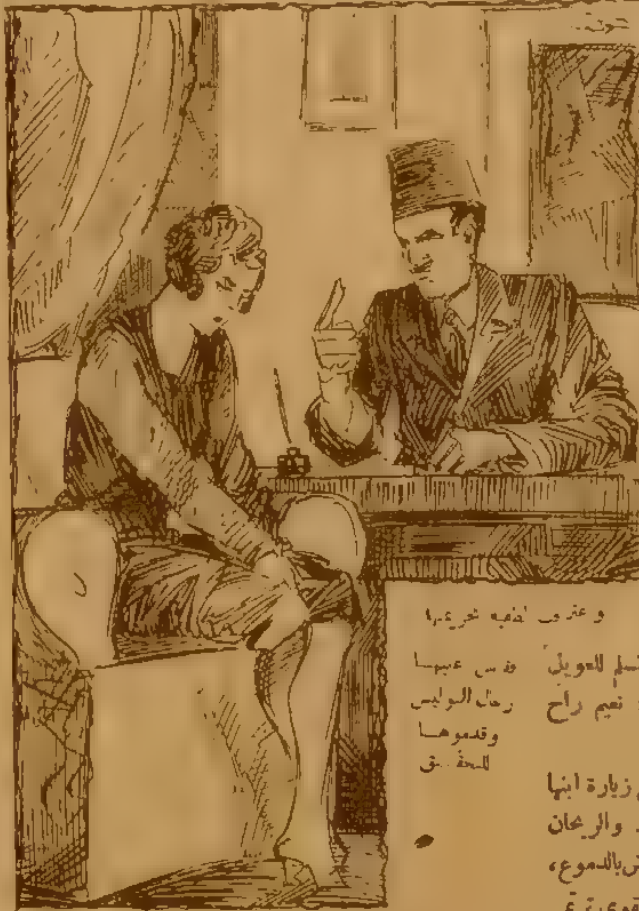 واعترفت لطفيه بجريمتها
وقبض عليها
رجال البوليس
وقدموها
للتحقيق
تسلم للعويل
نعيم راح
زيارة ابنها
والريحان
بالدموع،